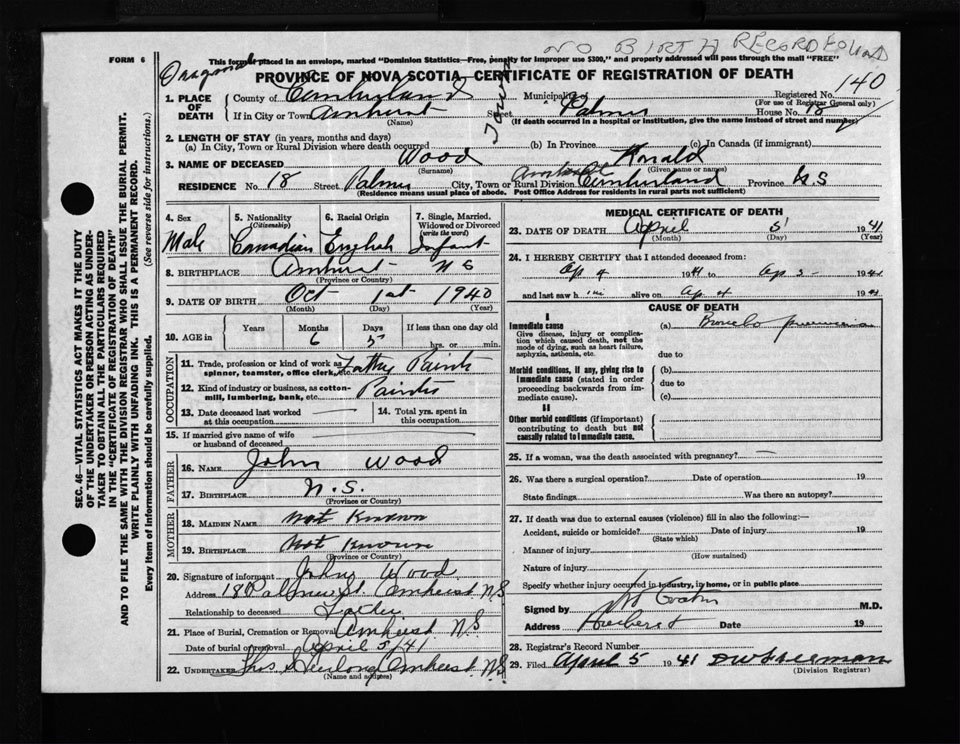 NO BIRTH RECORD FOUND
FORM 6
This form placed in an envelope, marked "Dominion Statistics—Free, penalty for improper use $300," and properly addressed will pass through the mail "FREE"
PROVINCE OF NOVA SCOTIA CERTIFICATE OF REGISTRATION OF DEATH
140
1. PLACE OF DEATH
County of Cumberland Municipality of Registered No.
(For use of Registrar General only)
If in City or Town Amherst Street Palmer House No. 18
(Name) (If death occurred in a hospital or institution, give the name instead of street and number)
2. LENGTH OF STAY (in years, months and days)
(a) In City, Town or Rural Division where death occurred (b) In Province (c) In Canada (if immigrant)
3. NAME OF DECEASED Wood Ronald
(Surname) (Given name or names)
Amherst
RESIDENCE No. 18 Street Palmer City, Town or Rural Division Cumberland Province N S
(Residence means usual place of abode. Post Office Address for residents in rural parts not sufficient)
4. Sex 5. Nationality (Citizenship) 6. Racial Origin 7. Single, Married, Widowed or Divorced (write the word)
Male Canadian English Infant
8. BIRTHPLACE Amherst N S
(Province or Country)
9. DATE OF BIRTH Oct 1st 1940
(Month) (Day) (Year)
10. AGE in Years Months Days If less than one day old
6 5 hrs. or min.
OCCUPATION
11. Trade, profession or kind of work as spinner, teamster, office clerk, etc. Father
12. Kind of industry or business, as cotton-mill, lumbering, bank, etc.
13. Date deceased last worked at this occupation
14. Total yrs. spent in this occupation
15. If married give name of wife or husband of deceased
FATHER
16. NAME John Wood
17. BIRTHPLACE N.S.
(Province or Country)
MOTHER
18. MAIDEN NAME Not Known
19. BIRTHPLACE Not Known
(Province or Country)
20. Signature of informant John Wood
Address 18 Palmer St. Amherst N.S
Relationship to deceased Father
21. Place of Burial, Cremation or Removal Amherst N.S
Date of burial or removal April 5/41
22. UNDERTAKER Amherst N.S
(Name and address)
MEDICAL CERTIFICATE OF DEATH
23. DATE OF DEATH April 5 1941
(Month) (Day) (Year)
24. I HEREBY CERTIFY that I attended deceased from:
Ap 4 1941 to Ap 5 1941
and last saw him alive on Ap 4 1941
CAUSE OF DEATH
I
Immediate cause (a) Broncho pneumonia
Give disease, injury or complication which caused death, not the mode of dying, such as heart failure, asphyxia, asthenia, etc.
due to
Morbid conditions, if any, giving rise to immediate cause (stated in order proceeding backwards from immediate cause).
(b)
due to
(c)
II
Other morbid conditions (if important) contributing to death but not causally related to immediate cause.
25. If a woman, was the death associated with pregnancy?
26. Was there a surgical operation? Date of operation 19
State findings Was there an autopsy?
27. If death was due to external causes (violence) fill in also the following:—
Accident, suicide or homicide? Date of injury 19
(State which)
Manner of injury
(How sustained)
Nature of injury
Specify whether injury occurred in industry, in home, or in public place
Signed by M.D.
Address Amherst Date 19
28. Registrar's Record Number
29. Filed April 5 1941 D W Freeman
(Division Registrar)
SEC. 46—VITAL STATISTICS ACT MAKES IT THE DUTY
OF THE UNDERTAKER OR PERSON ACTING AS UNDER-
TAKER TO OBTAIN ALL THE PARTICULARS REQUIRED
IN THE "CERTIFICATE OF REGISTRATION OF DEATH"
AND TO FILE THE SAME WITH THE DIVISION REGISTRAR WHO SHALL ISSUE THE BURIAL PERMIT.
WRITE PLAINLY WITH UNFADING INK. THIS IS A PERMANENT RECORD.
Every item of information should be carefully supplied. (See reverse side for instructions.)